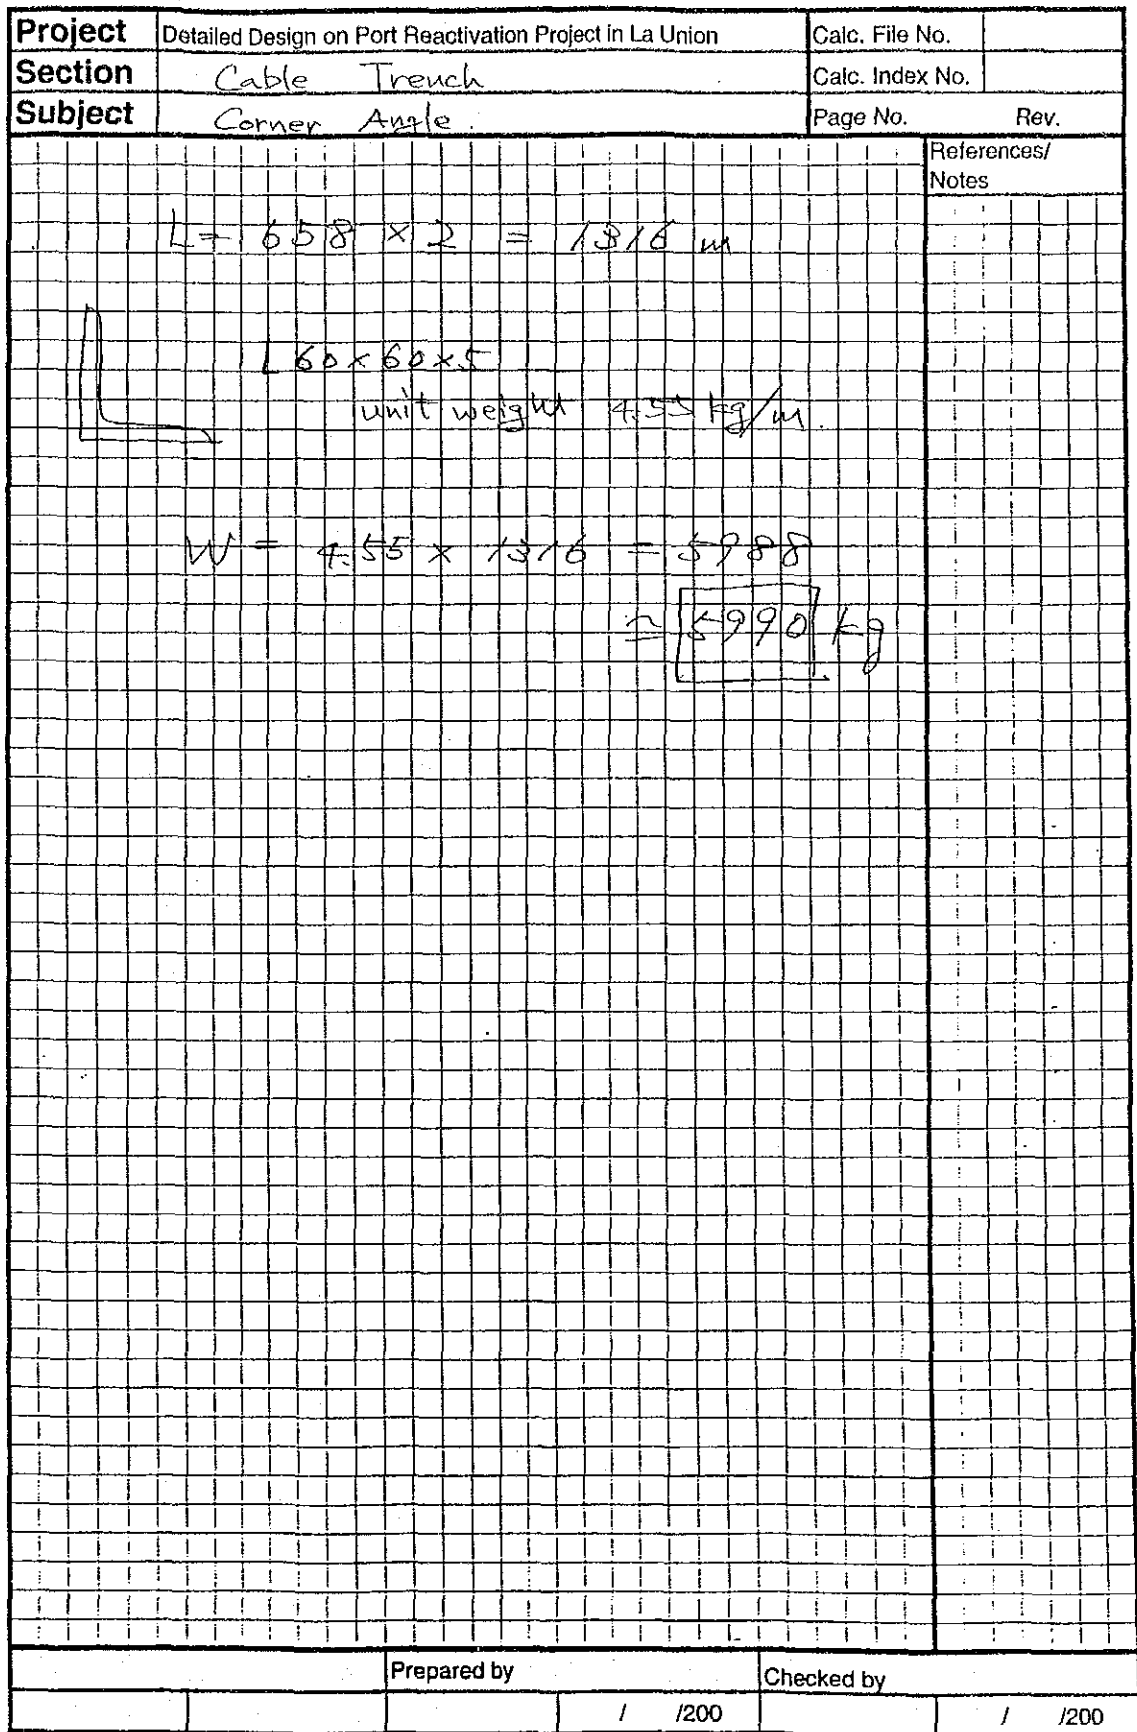 Project Detailed Design on Port Reactivation Project in La Union Calc. File No.
Section Cable Trench Calc. Index No.
Subject Corner Angle. Page No. Rev.
References/
Notes
L = 658 × 2 = 1316 m
L 60×60×5
unit weight 4.55 kg/m.
W = 4.55 × 1316 = 5988
≃ 5990 kg
Prepared by Checked by
/ /200 / /200